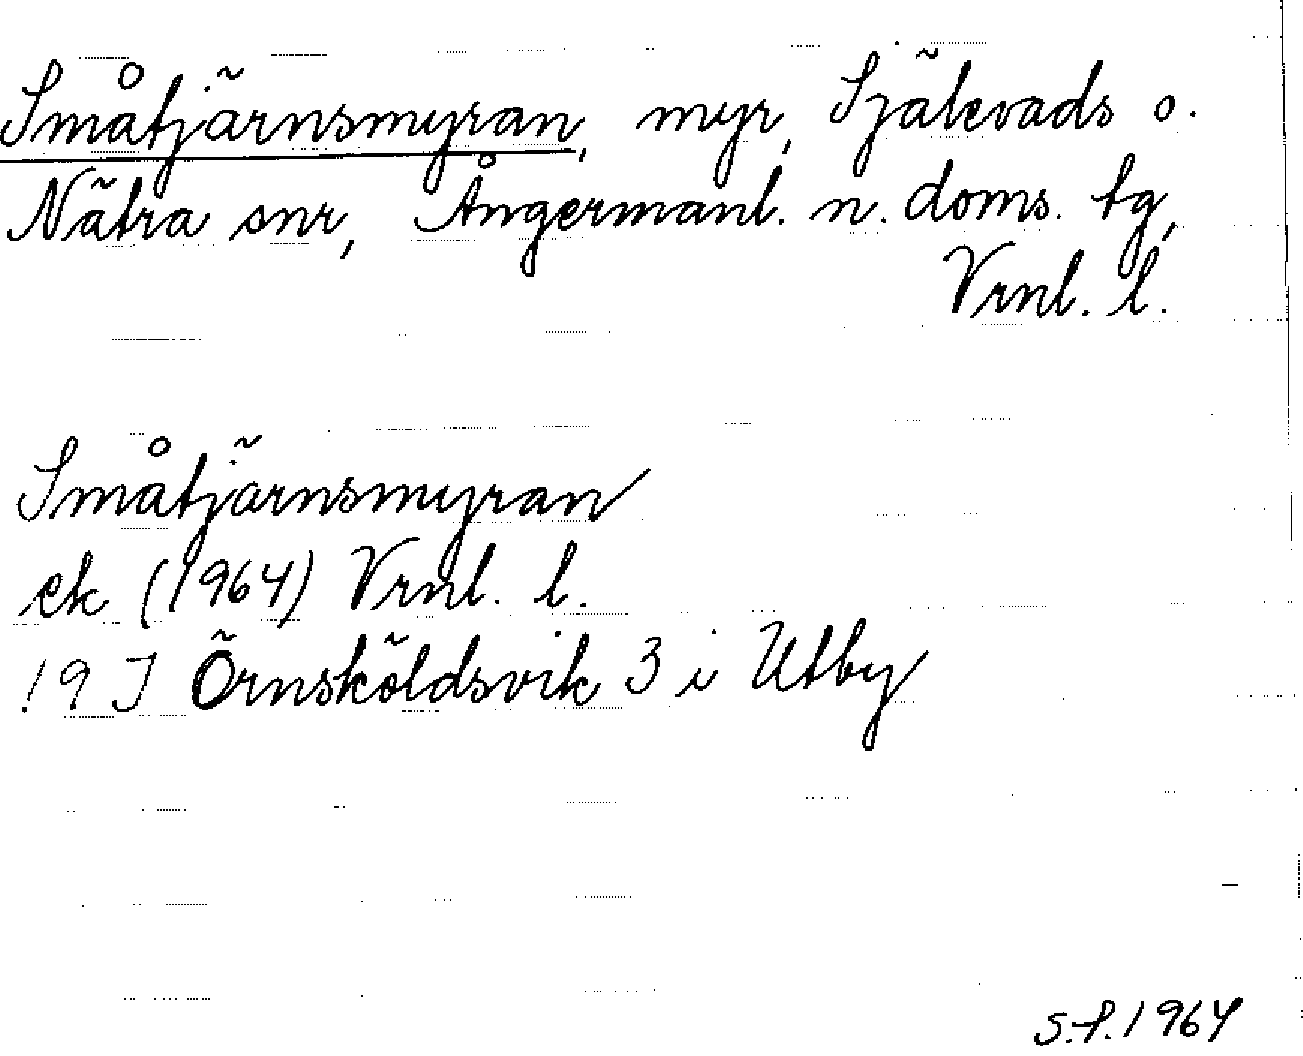 Småtjärnsmyran, myr, Själevads o.
Nätra snr, Ångermanl. n. doms. tg,
Vrnl. l.
Småtjärnsmyran
ek (1964) Vrnl. l.
19 J Örnsköldsvik 3 i Utby
S.f. 1964